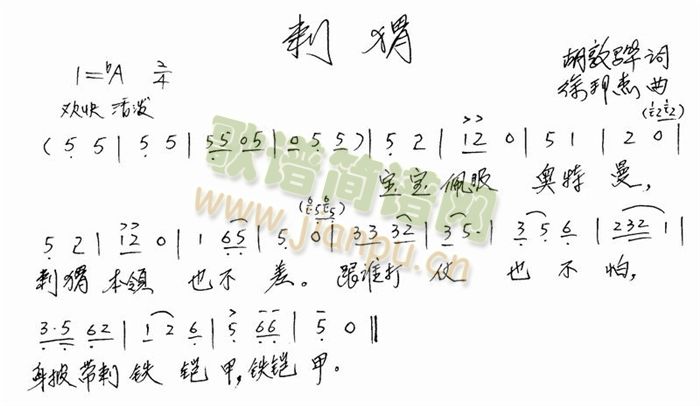 刺猬
1=♭A 2/4
胡敦骅 词
徐邦杰 曲
欢快 活泼
( 5 5 | 5 5 | 5 5 0 5 | 0 5 5 ) | 5 2 | 1 2 0 | 5 1 | 2 0 |
宝宝佩服 奥特曼,
5 2 | 1 2 0 | 1 6 5 | 5 0 | 3 3 3 2 | 3 5 · | 3 5 6 | 2 3 2 1 |
刺猬本领 也不差。跟谁打仗 也不怕,
3 · 5 6 2 | 1 2 6 | 5 6 6 | 5 0 ‖
身披带刺铁铠甲,铁铠甲。
歌谱简谱网
www.jianpu.cn